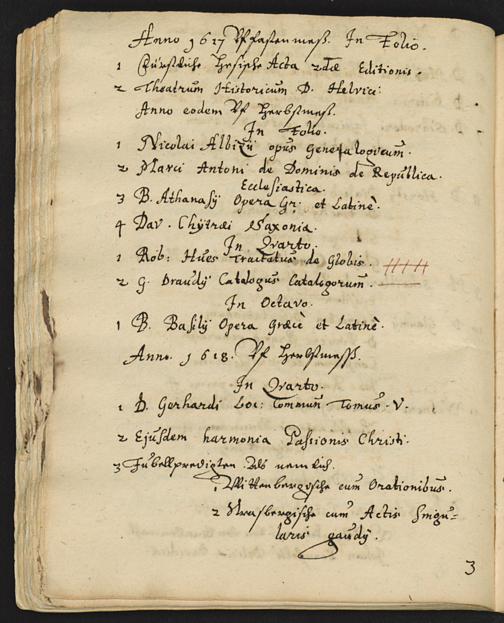 Anno 1617 Vf fastenmeß. In Folio.
1 Fürstliche Hesische Acta 2dæ Editionis.
2 Theatrum Historicum D. Helvici
Anno eodem Vf Herbstmeß.
In Folio.
1 Nicolai Albizij opus Genealogicum.
2 Marci Antoni de Dominis de Republica
Ecclesiastica.
3 B. Athanasij Opera Gr. et Latinè.
4 Dav. Chytræi Saxonia.
In Quarto.
1 Rob: Hues Tractatus de Globis.
2 G. Draudij Catalogus Catalogorum.
In Octavo.
1 B. Basilij Opera Græcè et Latinè.
Anno. 1618. Vf Herbstmeß.
In Quarto.
1 D. Gerhardi Loc: Commun Tomus. V.
2 Ejusdem harmonia Passionis Christi.
3 Jubellpredigten Als nemlich.
1 Wittenbergische cum Orationibus.
2 Strasbergische cum Actis singu=
laris gaudij.
3